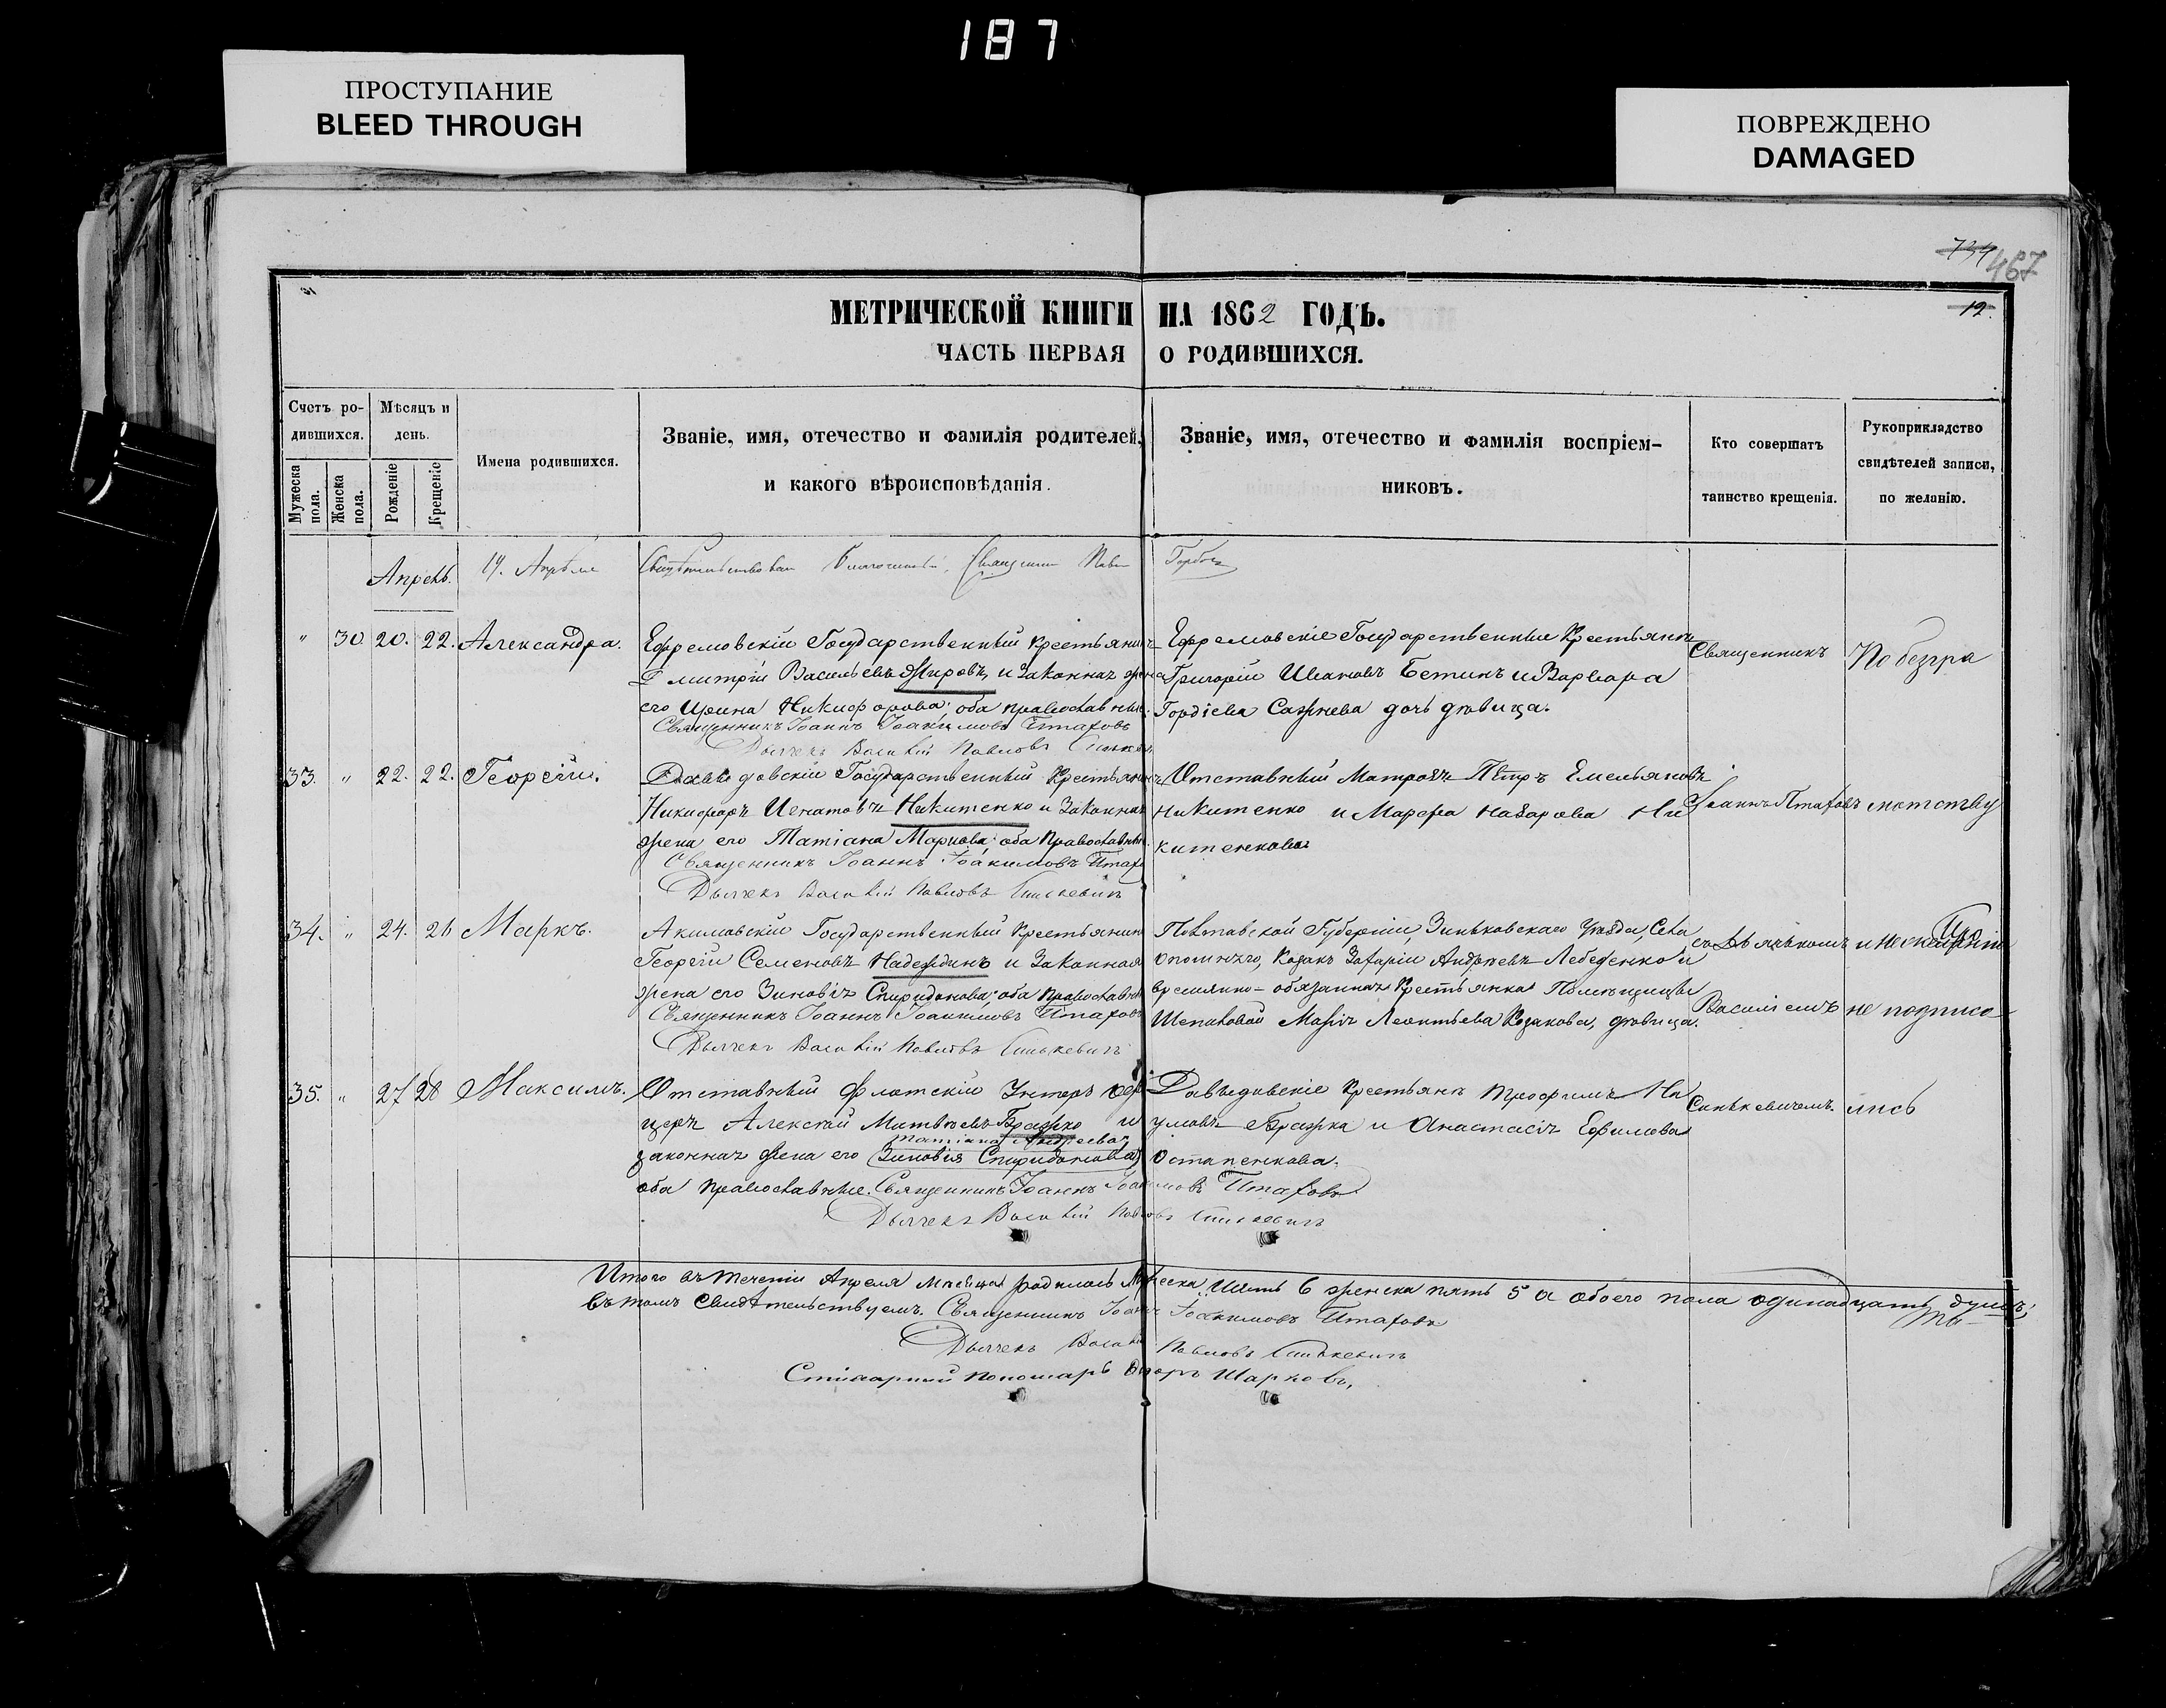 187
ПРОСТУПАНИЕ
BLEED THROUGH
ПОВРЕЖДЕНО
DAMAGED
734
467
12.
МЕТРИЧЕСКОЙ КНИГИ НА 1862 ГОДЪ.
ЧАСТЬ ПЕРВАЯ О РОДИВШИХСЯ.
Счетъ ро-
дившихся.
Мужеска пола.
Женска пола.
Мѣсяцъ и
день.
Рожденіе
Крещеніе
Имена родившихся.
Званіе, имя, отечество и фамилія родителей,
и какого вѣроисповѣданія.
Званіе, имя, отечество и фамилія воспріем-
никовъ.
Кто совершатъ
таинство крещенія.
Рукоприкладство
свидѣтелей записи,
по желанію.
Апрель.
19. Апрѣля Благочинный, Священникъ
" 30 20. 22. Александра.
Ефремовскій Государственный Крестьянинъ
Дмитрій Васильевъ и законная жена
его Ирина Никифорова; оба православные.
Священникъ Іоаннъ Іоакимовъ Птаховъ
Дьячекъ Василій Павловъ
Ефремовскіе Государственные Крестьяне
Григорій Ивановъ Бетинъ и Варвара
Гордіева Сажнева дочь дѣвица.
33. " 22. 22. Георгій.
Давыдовскій Государственный Крестьянинъ
Никифоръ Игнатовъ Никитенко и законная
жена его Татіана Маркова; оба православные.
Священникъ Іоаннъ Іоакимовъ Птаховъ
Дьячекъ Василій Павловъ Синькевичъ
Отставный Матрозъ Пётръ Емельяновъ
Никитенко и Марфа Назарова Ни
китенкова.
34. " 24. 26 Маркъ.
Акимовскій Государственный Крестьянинъ
Георгій Семеновъ Надеждинъ и законная
жена его Зиновія Спиридонова; оба православные
Священникъ Іоаннъ Іоакимовъ Птаховъ
Дьячекъ Василій Павловъ Синькевичъ
Полтавской Губерніи, Зиньковскаго Уѣзда, Села
Опошняго, Козакъ Захарій Андреевъ Лебеденко и
временно-обязанная Крестьянка Помѣщицы
Марія Леонтьева Козакова, дѣвица.
35. " 27 28 Максимъ.
Отставный флотскій Унтеръ офи
церъ Алексѣй Матвѣевъ Бражко и
Татіана Андреева
законная жена его (Зиновія Спиридонова)
оба православные. Священникъ Іоаннъ Іоакимовъ Птаховъ
Дьячекъ Василій Павловъ Синькевичъ
Давыдовскіе Крестьяне Трофимъ На
умовъ Бражка и Анастасія Ефимова
Остапенкова.
Священникъ
Іоаннъ Птаховъ
съ Дьячкомъ
Василіемъ
Синькевичемъ.
По безгра
мотству
не подписа
лись
Итого въ теченіи Апреля мѣсяца родилось Мужеска шесть 6 женска пять 5 а обоего пола одинадцать душъ;
Въ томъ свидѣтельствуемъ. Священникъ Іоаннъ Іоакимовъ Птаховъ
Дьячекъ Василій Павловъ Синькевичъ
пономарь Шарковъ,